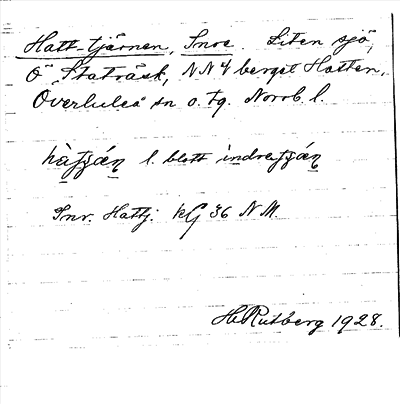 Hatt-tjärnen, Inre. Liten sjö,
Ö Statträsk, NNV berget Hatten,
Överluleå sn o. tg. Norrb. l.
l. blott
Inr. Hattj. KG 36 NM.
H Rutberg 1928.